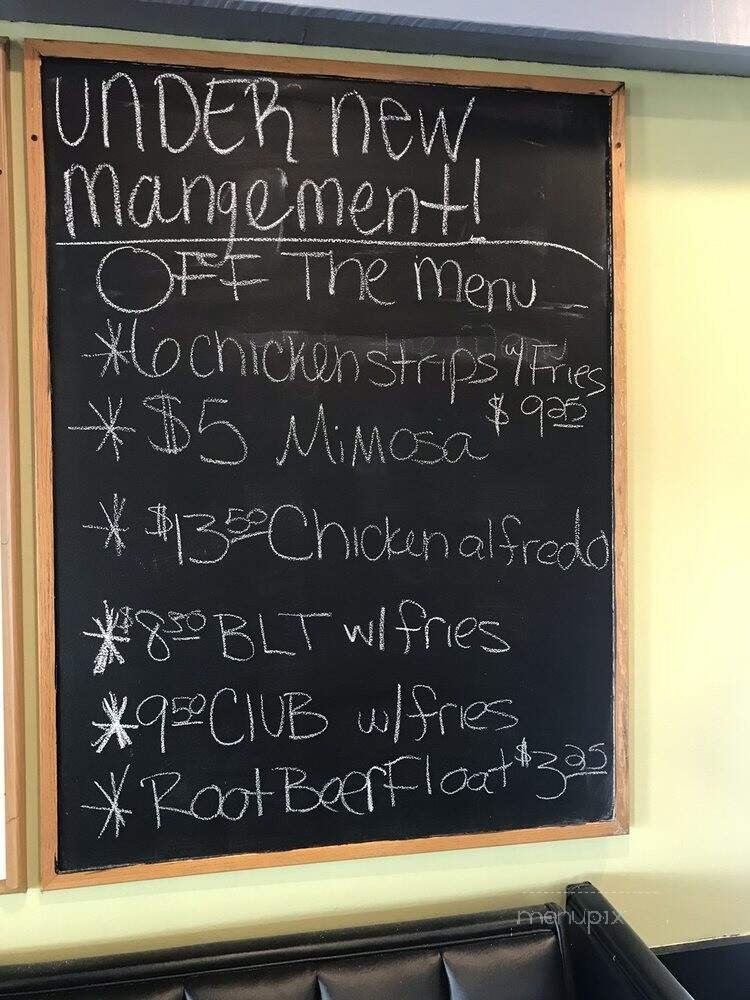 UNDER new
mangement!
OFF The menu -
*6 chicken strips w/ Fries
$ 9 25
* $5 Mimosa
* $13 50 Chicken alfredo
* $8 50 BLT w/ fries
* 9 50 ClUB w/ fries
* Root Beer Float $3 25
menupix